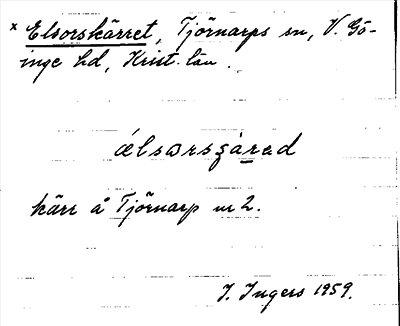 x Elsorskärret, Tjörnarps sn, V. Gö-
inge hd, Krist. län.
älsɷrsʒárad
kärr å Tjörnarp nr 2.
J. Ingers 1959.